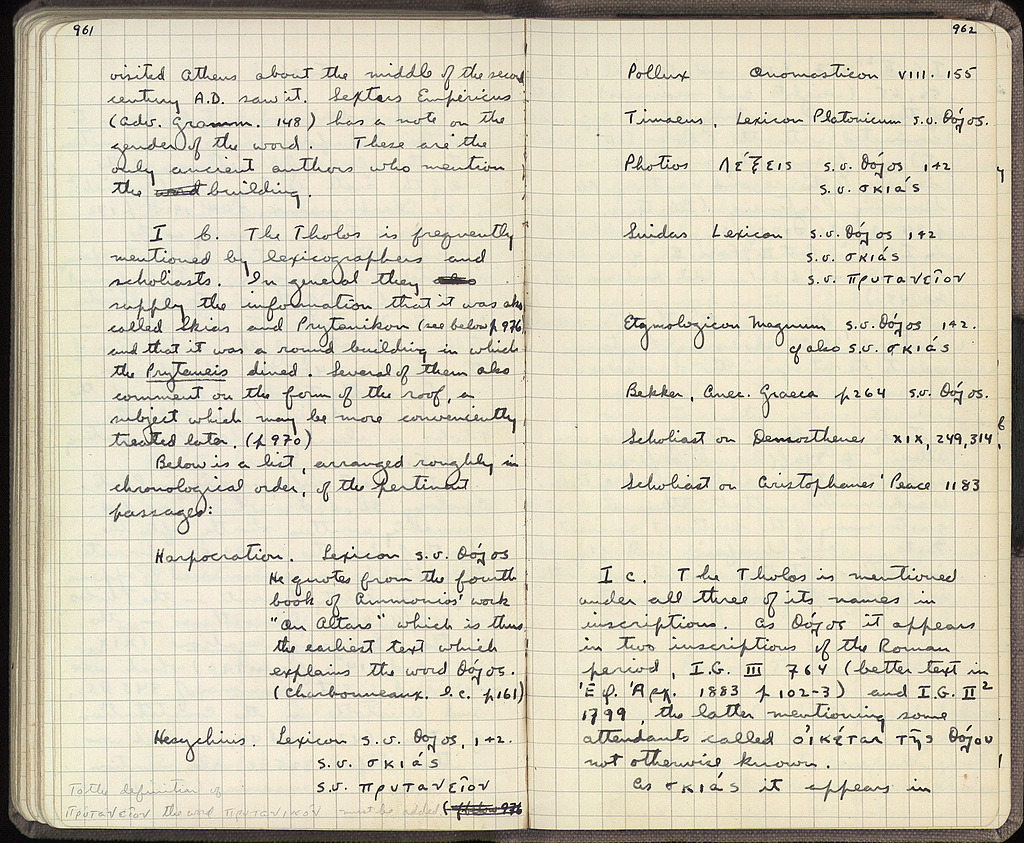 961
visited Athens about the middle of the second
century A.D. saw it. Sextus Empiricus
(Adv. Gramm. 148) has a note on the
gender of the word. These are the
only ancient authors who mention
the word building.
I b. The Tholos is frequently
mentioned by lexicographers and
scholiasts. In general they also
supply the information that it was also
called Skias and Prytanikon (see below p 976
and that it was a round building in which
the Prytaneis dined. Several of them also
comment on the form of the roof, a
subject which may be more conveniently
treated later. (p 970)
Below is a list, arranged roughly in
chronological order, of the pertinent
passages:
Harpocration. Lexicon s.v. θόλος
He quotes from the fourth
book of Ammonios' work
"On Altars" which is thus
the earliest text which
explains the word θόλος.
(Charbonneaux. l.c. p161)
Hesychius. Lexicon s.v. θόλος, 1+2.
s.v. σκιάς
s.v. πρυτανεῖον
To the definition of
πρυτανεῖον the word πρυτανικόν must be added
976
962
Pollux Onomasticon VIII. 155
Timaeus, Lexicon Platonicum s.v. θόλος.
Photios Λέξεις s.v. θόλος 1+2
s.v. σκιάς
Suidas Lexicon s.v. θόλος 1+2
s.v. σκιάς
s.v. πρυτανεῖον
Etymologicon Magnum s.v. θόλος 1+2.
cf also s.v. σκιάς
Bekker, Anec. Graeca p264 s.v. θόλος.
Scholiast on Demosthenes XIX, 249, 314
Scholiast on Aristophanes' Peace 1183
I c. The Tholos is mentioned
under all three of its names in
inscriptions. As θόλος it appears
in two inscriptions of the Roman
period, I.G. III 764 (better text in
Ἐφ. Ἀρχ. 1883 p 102-3) and I.G. II²
1799, the latter mentioning some
attendants called οἰκέται τῆς θόλου
not otherwise known.
As σκιάς it appears in